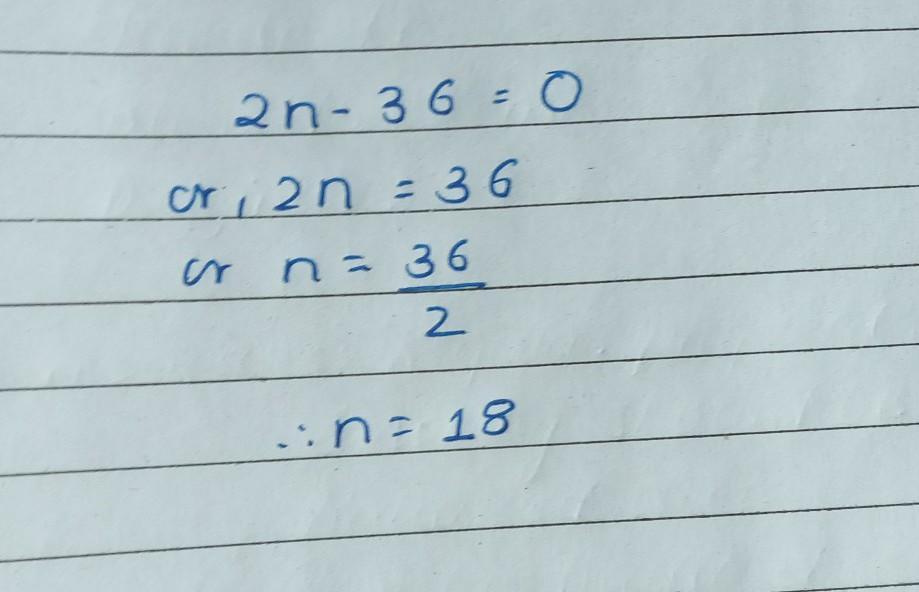 2n - 36 = 0
or, 2n = 36
or n = 36/2
∴ n = 18